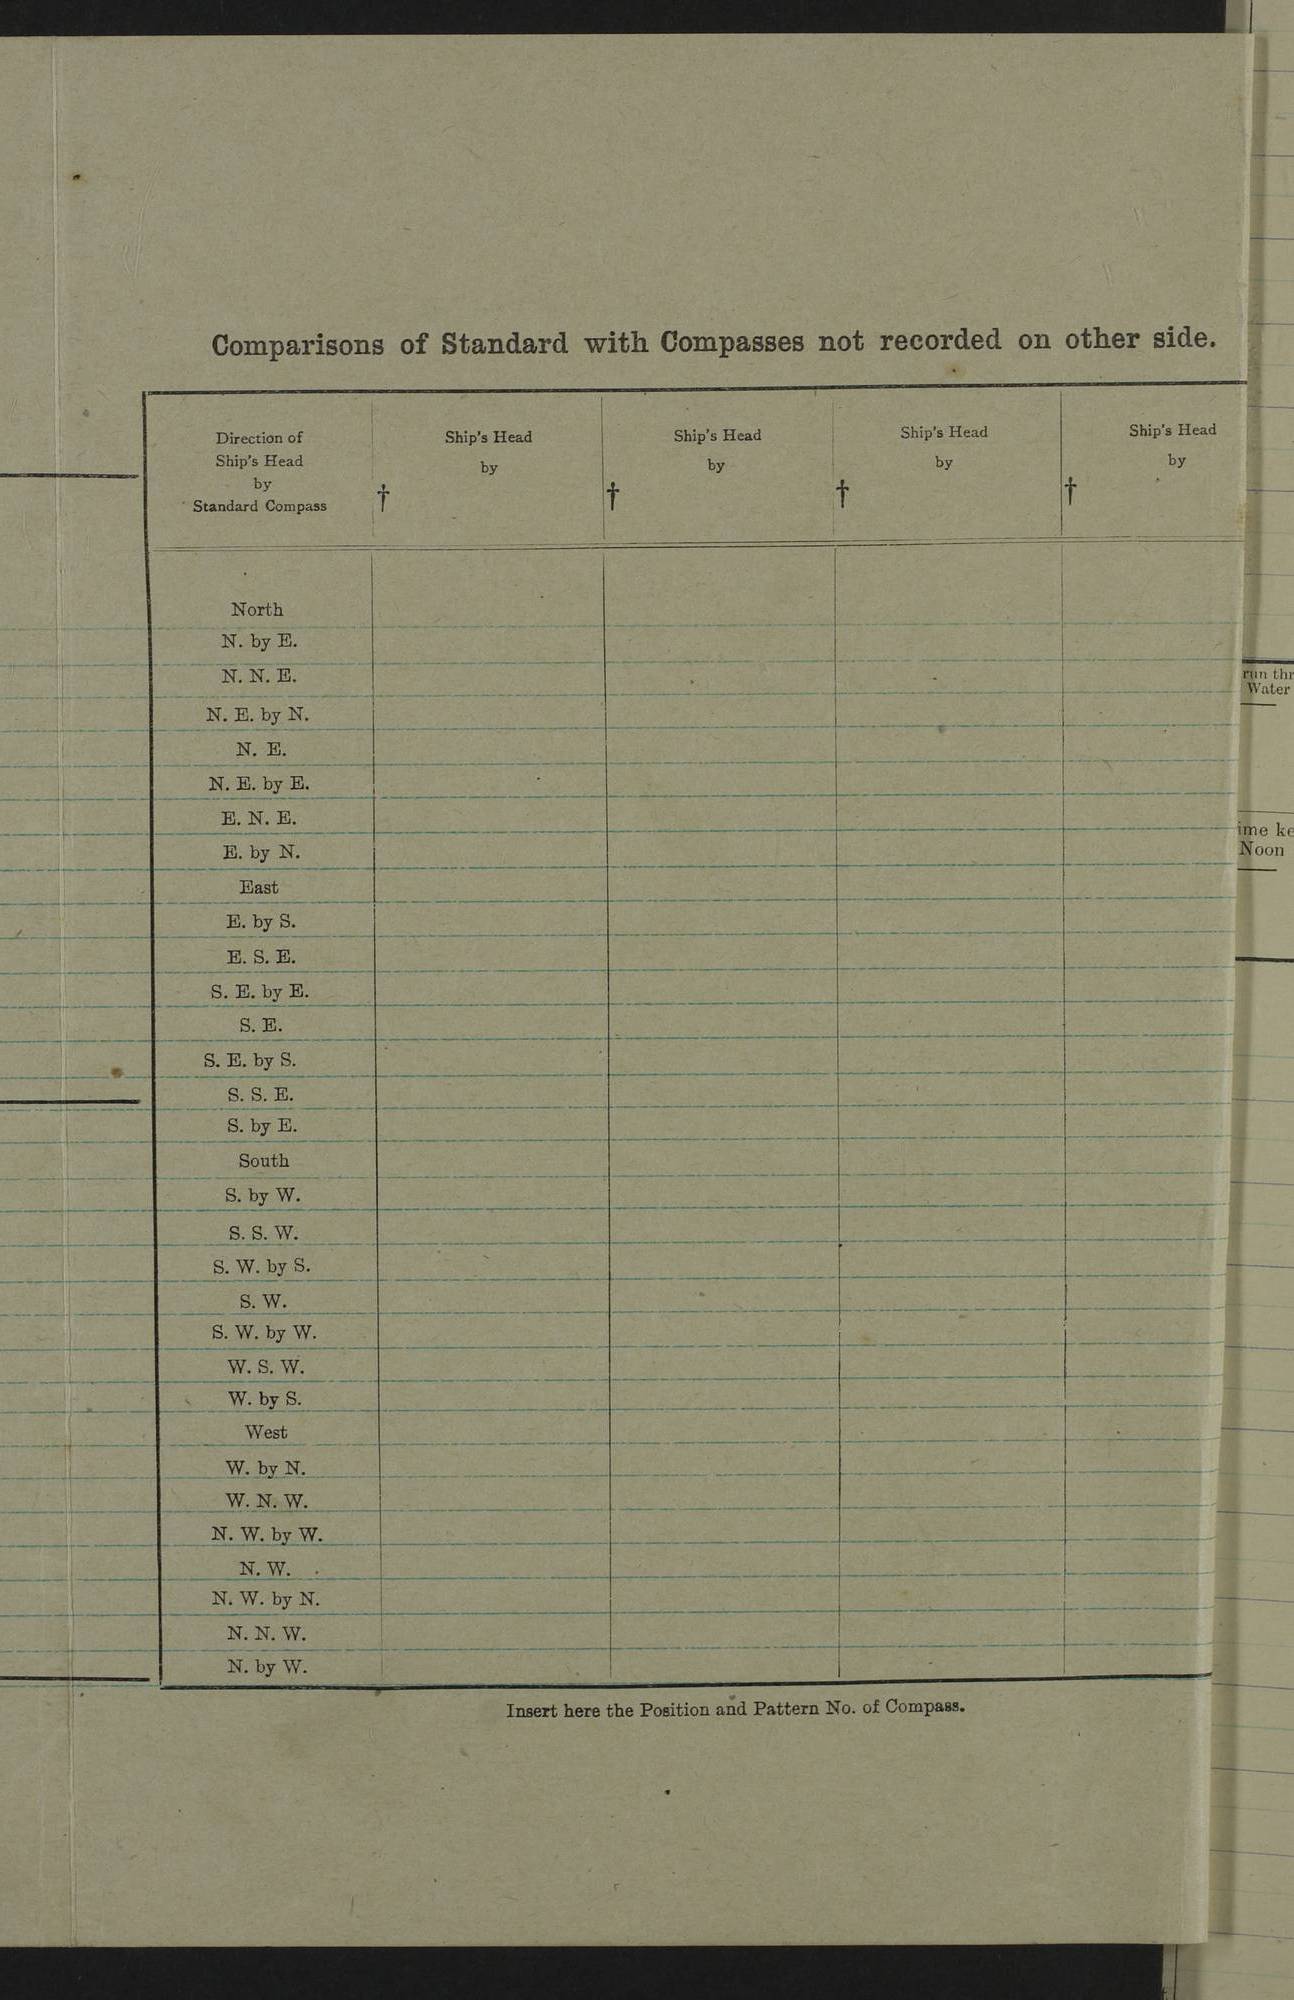 Comparisons of Standard with Compasses not recorded on other side.
Direction of
Ship's Head
by
Standard Compass
Ship's Head
by
†
Ship's Head
by
†
Ship's Head
by
†
Ship's Head
by
†
North
N. by E.
N. N. E.
N. E. by N.
N. E.
N. E. by E.
E. N. E.
E. by N.
East
E. by S.
E. S. E.
S. E. by E.
S. E.
S. E. by S.
S. S. E.
S. by E.
South
S. by W.
S. S. W.
S. W. by S.
S. W.
S. W. by W.
W. S. W.
W. by S.
West
W. by N.
W. N. W.
N. W. by W.
N. W.
N. W. by N.
N. N. W.
N. by W.
Insert here the Position and Pattern No. of Compass.
run
Water
Noon